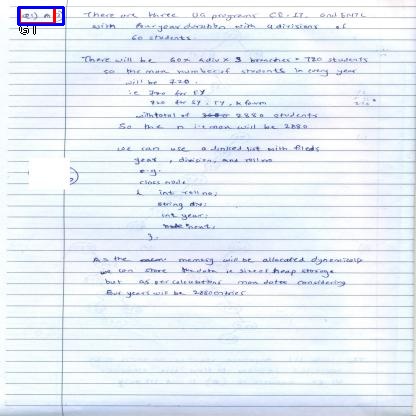 Q1) A)
G1
There are three UG programs CE, IT, and ENTC
with four year duration with 4 divisions of
60 students
There will be 60 x 4 div x 3 branches = 720 students
so the max number of students in every year
will be 720.
i.e 720 for FY
720 for SY, TY,
with total of 2880 students
So the n i.e max will be 2880
we can use a linked list with fileds
year , division, and roll no
e.g.
class node
{ int roll no;
string div;
int year;
node * next;
};
As the memory will be allocated dynamically
we can store the data ie size of heap storage
but as per calculations max data considering
four years will be 2880 entries